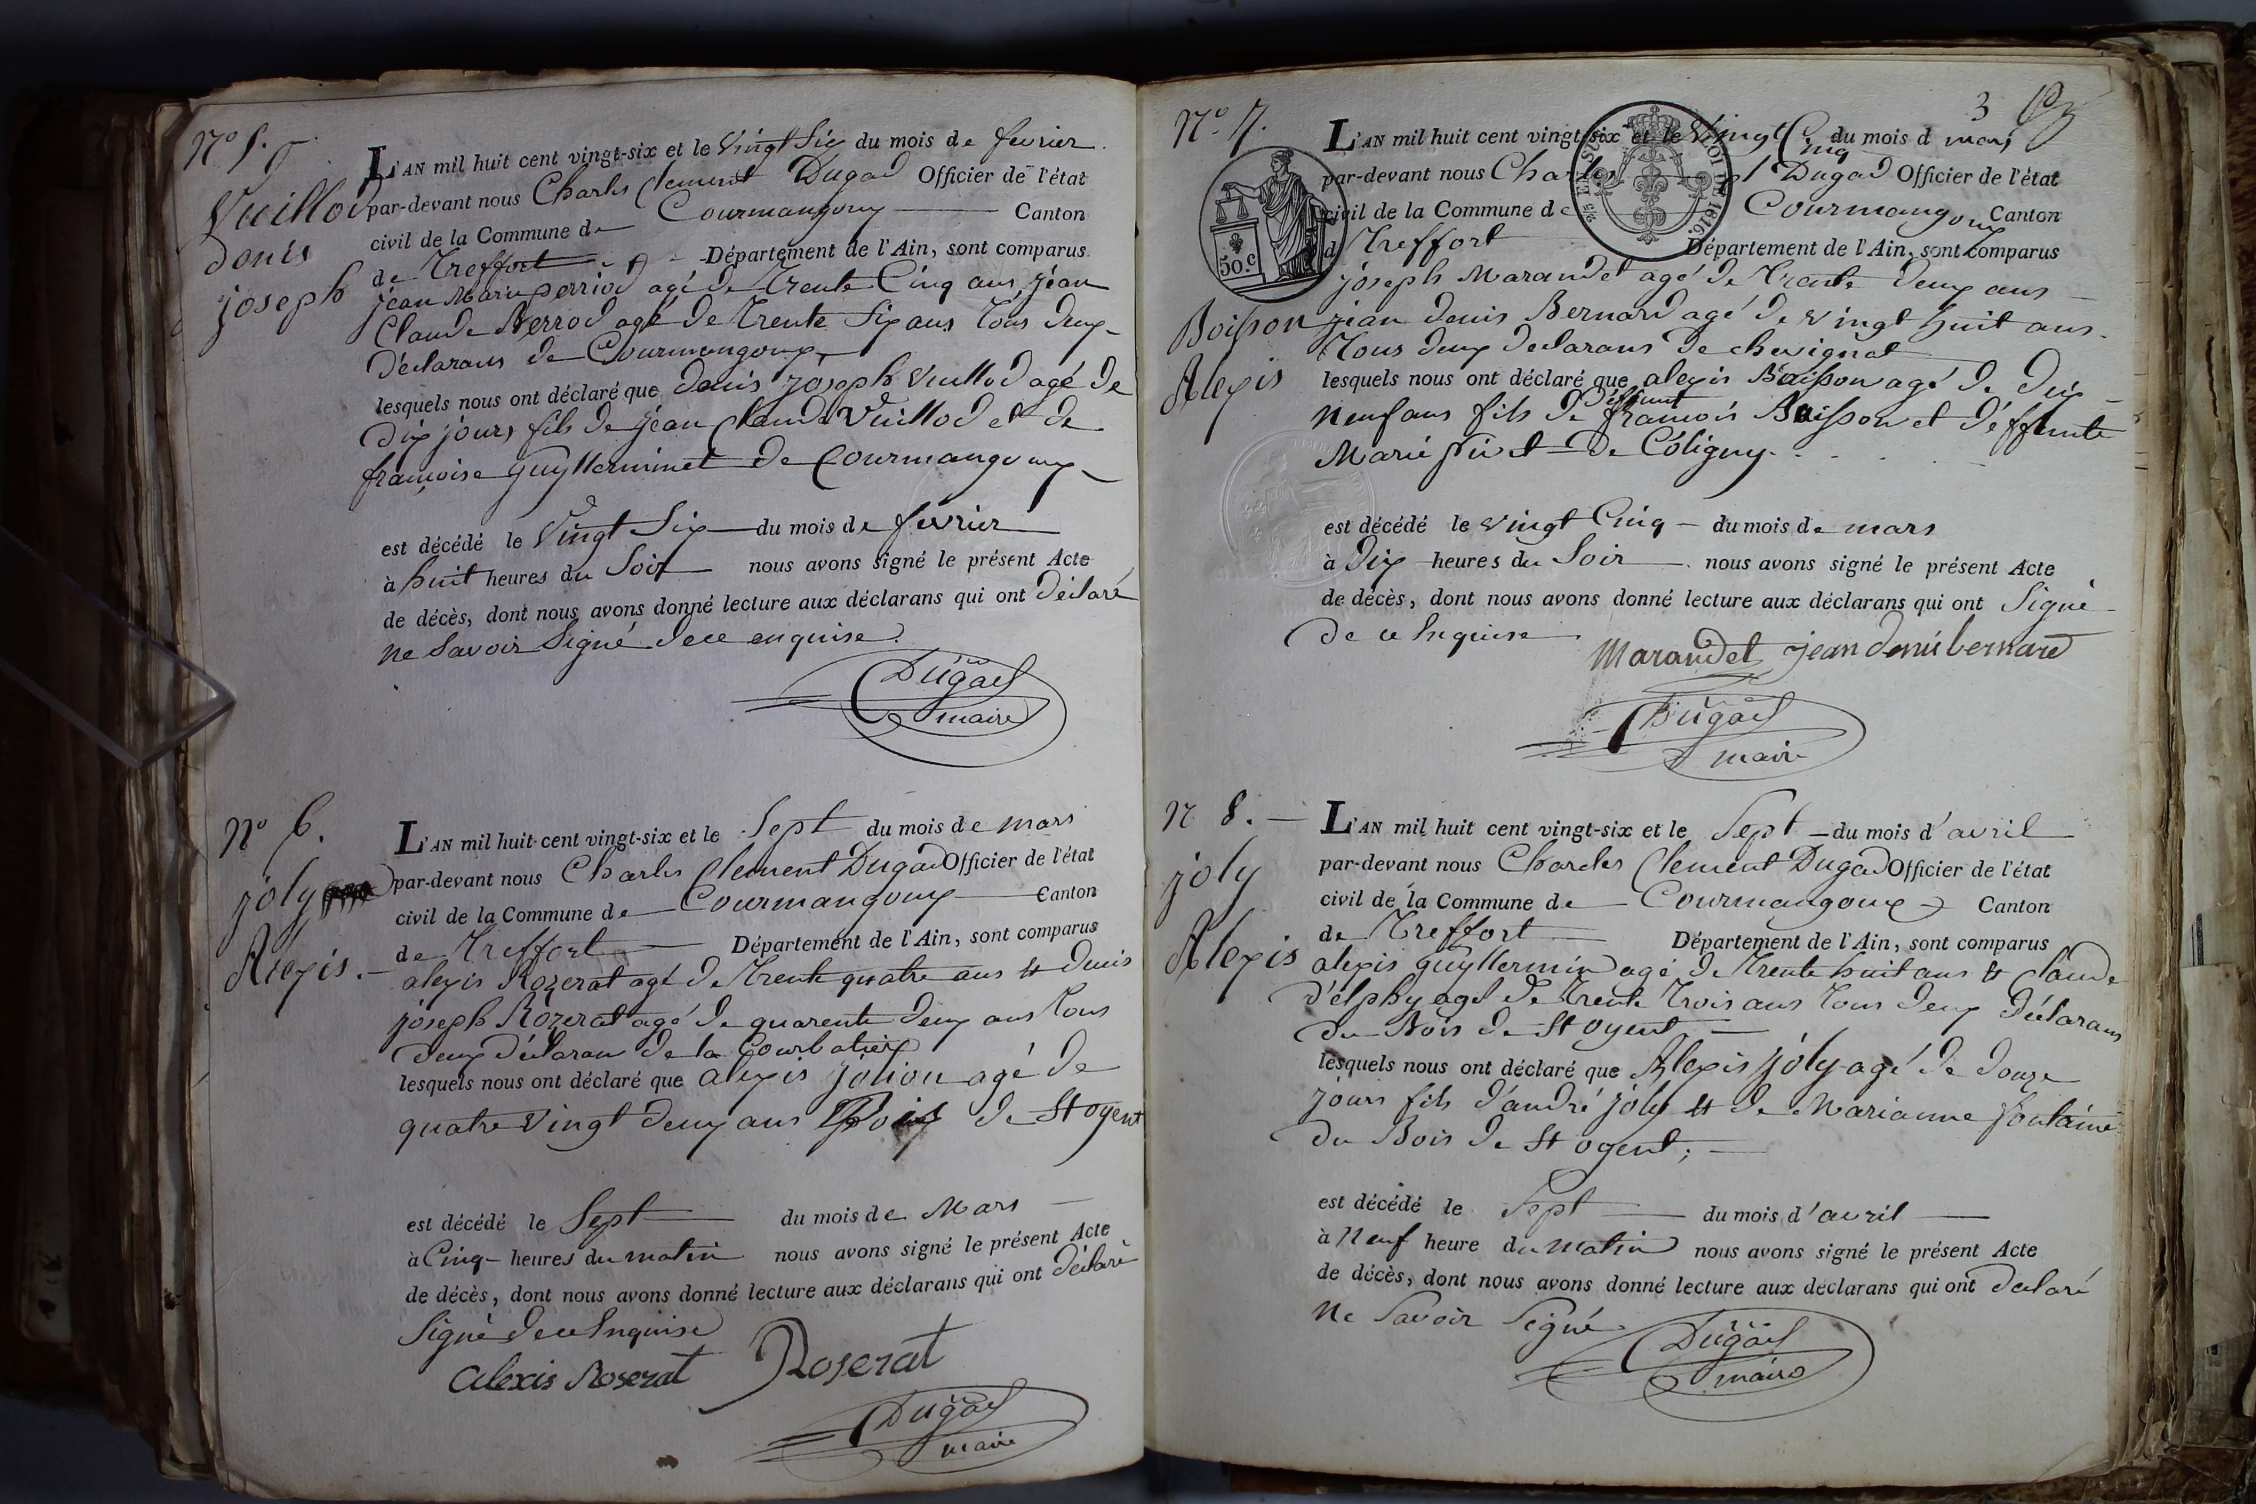 No 5.
Vuillod
denis
joseph
L'AN mil huit cent vingt-six et le vingt Six du mois de fevrier
par-devant nous Charles Clement Dugad Officier de l'état
civil de la Commune de Courmangoux Canton
de Treffort Département de l'Ain, sont comparus
jean Marie perriod agé de Trente Cinq ans, jean
Claude agé de Trente Six ans Tous deux
déclarans de Courmangoux
lesquels nous ont déclaré que denis joseph Vuillod agé de
dix jours fils de jean Claude Vuillod et de
françoise guyllerminet de Courmangoux
est décédé le Vingt Six du mois de fevrier
à huit heures du Soir nous avons signé le présent Acte
de décès, dont nous avons donné lecture aux déclarans qui ont déclaré
ne Savoir Signé de ce enquise.
Dugad
maire
No 6.
joly
Alexis.
L'AN mil huit cent vingt-six et le Sept du mois de mars
par-devant nous Charles Clement Dugad Officier de l'état
civil de la Commune de Courmangoux Canton
de Treffort Département de l'Ain, sont comparus
alexis Rozerat agé de Trente quatre ans et denis
joseph Rozerat agé de quarente deux ans Tous
deux déclaran de la Courbatiere
lesquels nous ont déclaré que alexis agé de
quatre Vingt deux ans Bois de St oyent
est décédé le Sept du mois de Mars
à Cinq heures du matin nous avons signé le présent Acte
de décès, dont nous avons donné lecture aux déclarans qui ont déclaré
Signé de ce Enquise
alexis Roserat Roserat
Dugad
maire
3
No. 7.
50.c
LOI DE 1816.
Boisson
Alexis
L'AN mil huit cent vingt-six et le Vingt Cinq du mois d mars
par-devant nous Charles Dugad Officier de l'état
civil de la Commune de Courmangoux Canton
d Treffort Département de l'Ain, sont comparus
joseph Marandet agé de Trente deux ans
jean denis Bernard agé de vingt huit ans
Tous deux declarans de chevignat
lesquels nous ont déclaré que alexis Boisson agé de dix
neuf ans fils de déffunt francois Boisson et d'éffunte
Marie pivet de Coligny.
est décédé le vingt Cinq du mois de mars
à Dix heures du Soir nous avons signé le présent Acte
de décès, dont nous avons donné lecture aux déclarans qui ont Signé
de ce Enquise
Marandet jean denis bernard
Dugad
maire
N 8.
joly
Alexis
L'AN mil huit cent vingt-six et le Sept du mois d'avril
par-devant nous Charles Clement Dugad Officier de l'état
civil de la Commune de Courmangoux Canton
de Treffort Département de l'Ain, sont comparus
alexis guyllermin agé de Trente huit ans et claude
d'élphy agé de Trente Trois ans Tous deux déclarans
du Bois de St oyent
lesquels nous ont déclaré que Alexis joly agé de douze
jours fils d'andré joly et de Marianne fontaine
du Bois de St ogent;
est décédé le Sept du mois d'avril
à Neuf heure du matin nous avons signé le présent Acte
de décès, dont nous avons donné lecture aux déclarans qui ont declaré
Ne Savoir Signé
Dugad
maire